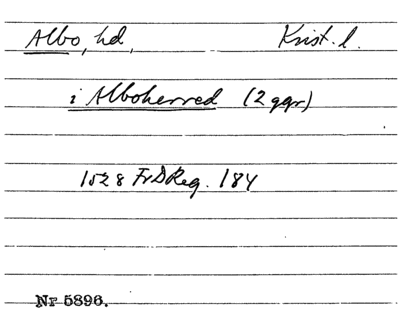 Albo, hd, Krist. l.
i Alboherred (2 ggr)
1528 FrDReg. 184
Nr 5896.